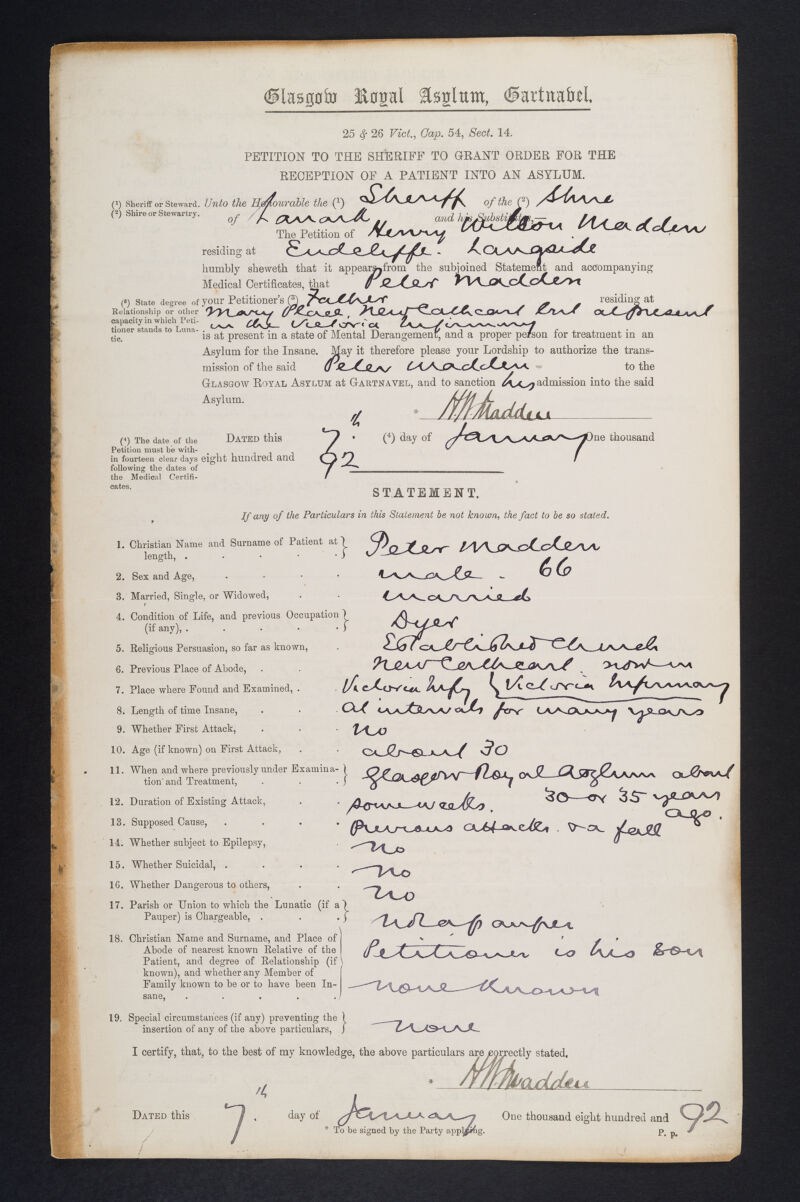 Glasgow Royal Asylum, Gartnavel.
25 & 26 Vict., Cap. 54, Sect. 14.
PETITION TO THE SHERIFF TO GRANT ORDER FOR THE
RECEPTION OF A PATIENT INTO AN ASYLUM.
(1) Sheriff or Steward.
(2) Shire or Stewartry.
Unto the Honourable the (1) Sheriff of the (2) Shire
of Lanark and his Substitutes,—
The Petition of Henry Wilson Madden
residing at Endcliffe. Langside
humbly sheweth that it appears from the subjoined Statement and accompanying
Medical Certificates, that Peter Madden
(3) State degree of
Relationship or other
capacity in which Peti-
tioner stands to Luna-
tic.
your Petitioner's (3) Father residing at
Mary Place, New Cathcart but at present
in the Victoria Infirmary
is at present in a state of Mental Derangement, and a proper person for treatment in an
Asylum for the Insane. May it therefore please your Lordship to authorize the trans-
mission of the said Peter Madden to the
GLASGOW ROYAL ASYLUM AT GARTNAVEL, and to sanction his admission into the said
Asylum.
* H W Madden
(4) The date of the
Petition must be with-
in fourteen clear days
following the dates of
the Medical Certifi-
cates.
DATED this 7.th (4) day of January One thousand
eight hundred and 92
STATEMENT.
If any of the Particulars in this Statement be not known, the fact to be so stated.
1. Christian Name and Surname of Patient at length, . Peter Madden
2. Sex and Age, male. 66
3. Married, Single, or Widowed, married
4. Condition of Life, and previous Occupation (if any), . Dyer
5. Religious Persuasion, so far as known, Established Church
6. Previous Place of Abode, New Cathcart. now in
7. Place where Found and Examined, . Victoria Infy { Victoria Infirmary
8. Length of time Insane, at intervals for many years
9. Whether First Attack, No
10. Age (if known) on First Attack, about 30
11. When and where previously under Examina-tion and Treatment, Glasgow Royal Asylum about
30 or 35 years
ago.
12. Duration of Existing Attack, some weeks.
13. Supposed Cause, Previous attacks & a fall
14. Whether subject to Epilepsy, No
15. Whether Suicidal, . No
16. Whether Dangerous to others, No
17. Parish or Union to which the Lunatic (if a Pauper) is Chargeable, . Not a pauper
18. Christian Name and Surname, and Place of
Abode of nearest known Relative of the
Patient, and degree of Relationship (if
known), and whether any Member of
Family known to be or to have been In-
sane,
Petitioner is his son
none known
19. Special circumstances (if any) preventing the
insertion of any of the above particulars, none
I certify, that, to the best of my knowledge, the above particulars are correctly stated.
* H W Madden
DATED this 7.th day of January One thousand eight hundred and 92
* To be signed by the Party applying.
P. p.